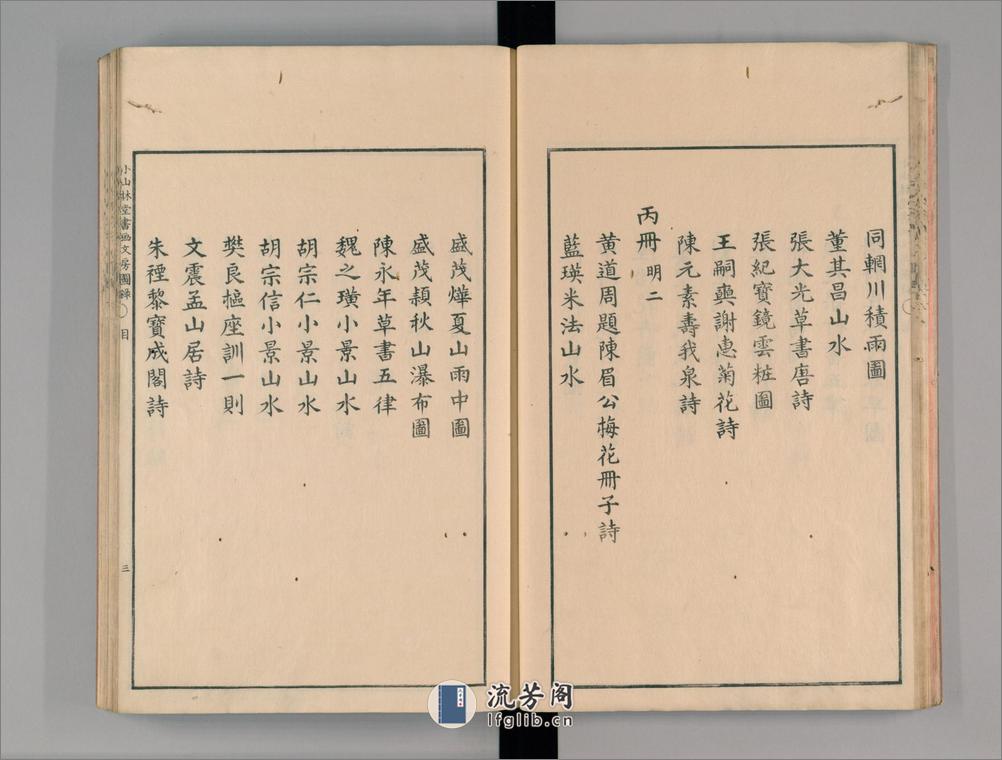 同輞川積雨圖
董其昌山水
張大光草書唐詩
張紀寶鏡雲粧圖
王嗣奭謝惠菊花詩
陳元素壽我泉詩
丙冊 明二
黄道周題陳眉公梅花冊子詩
藍瑛米法山水
盛茂燁夏山雨中圖
盛茂穎秋山瀑布圖
陳永年草書五律
魏之璜小景山水
胡宗仁小景山水
胡宗信小景山水
樊良樞座訓一則
文震孟山居詩
朱禋黎寶成閣詩
小山林堂書画文房圖錄 目
三
流芳阁
lfglib.cn